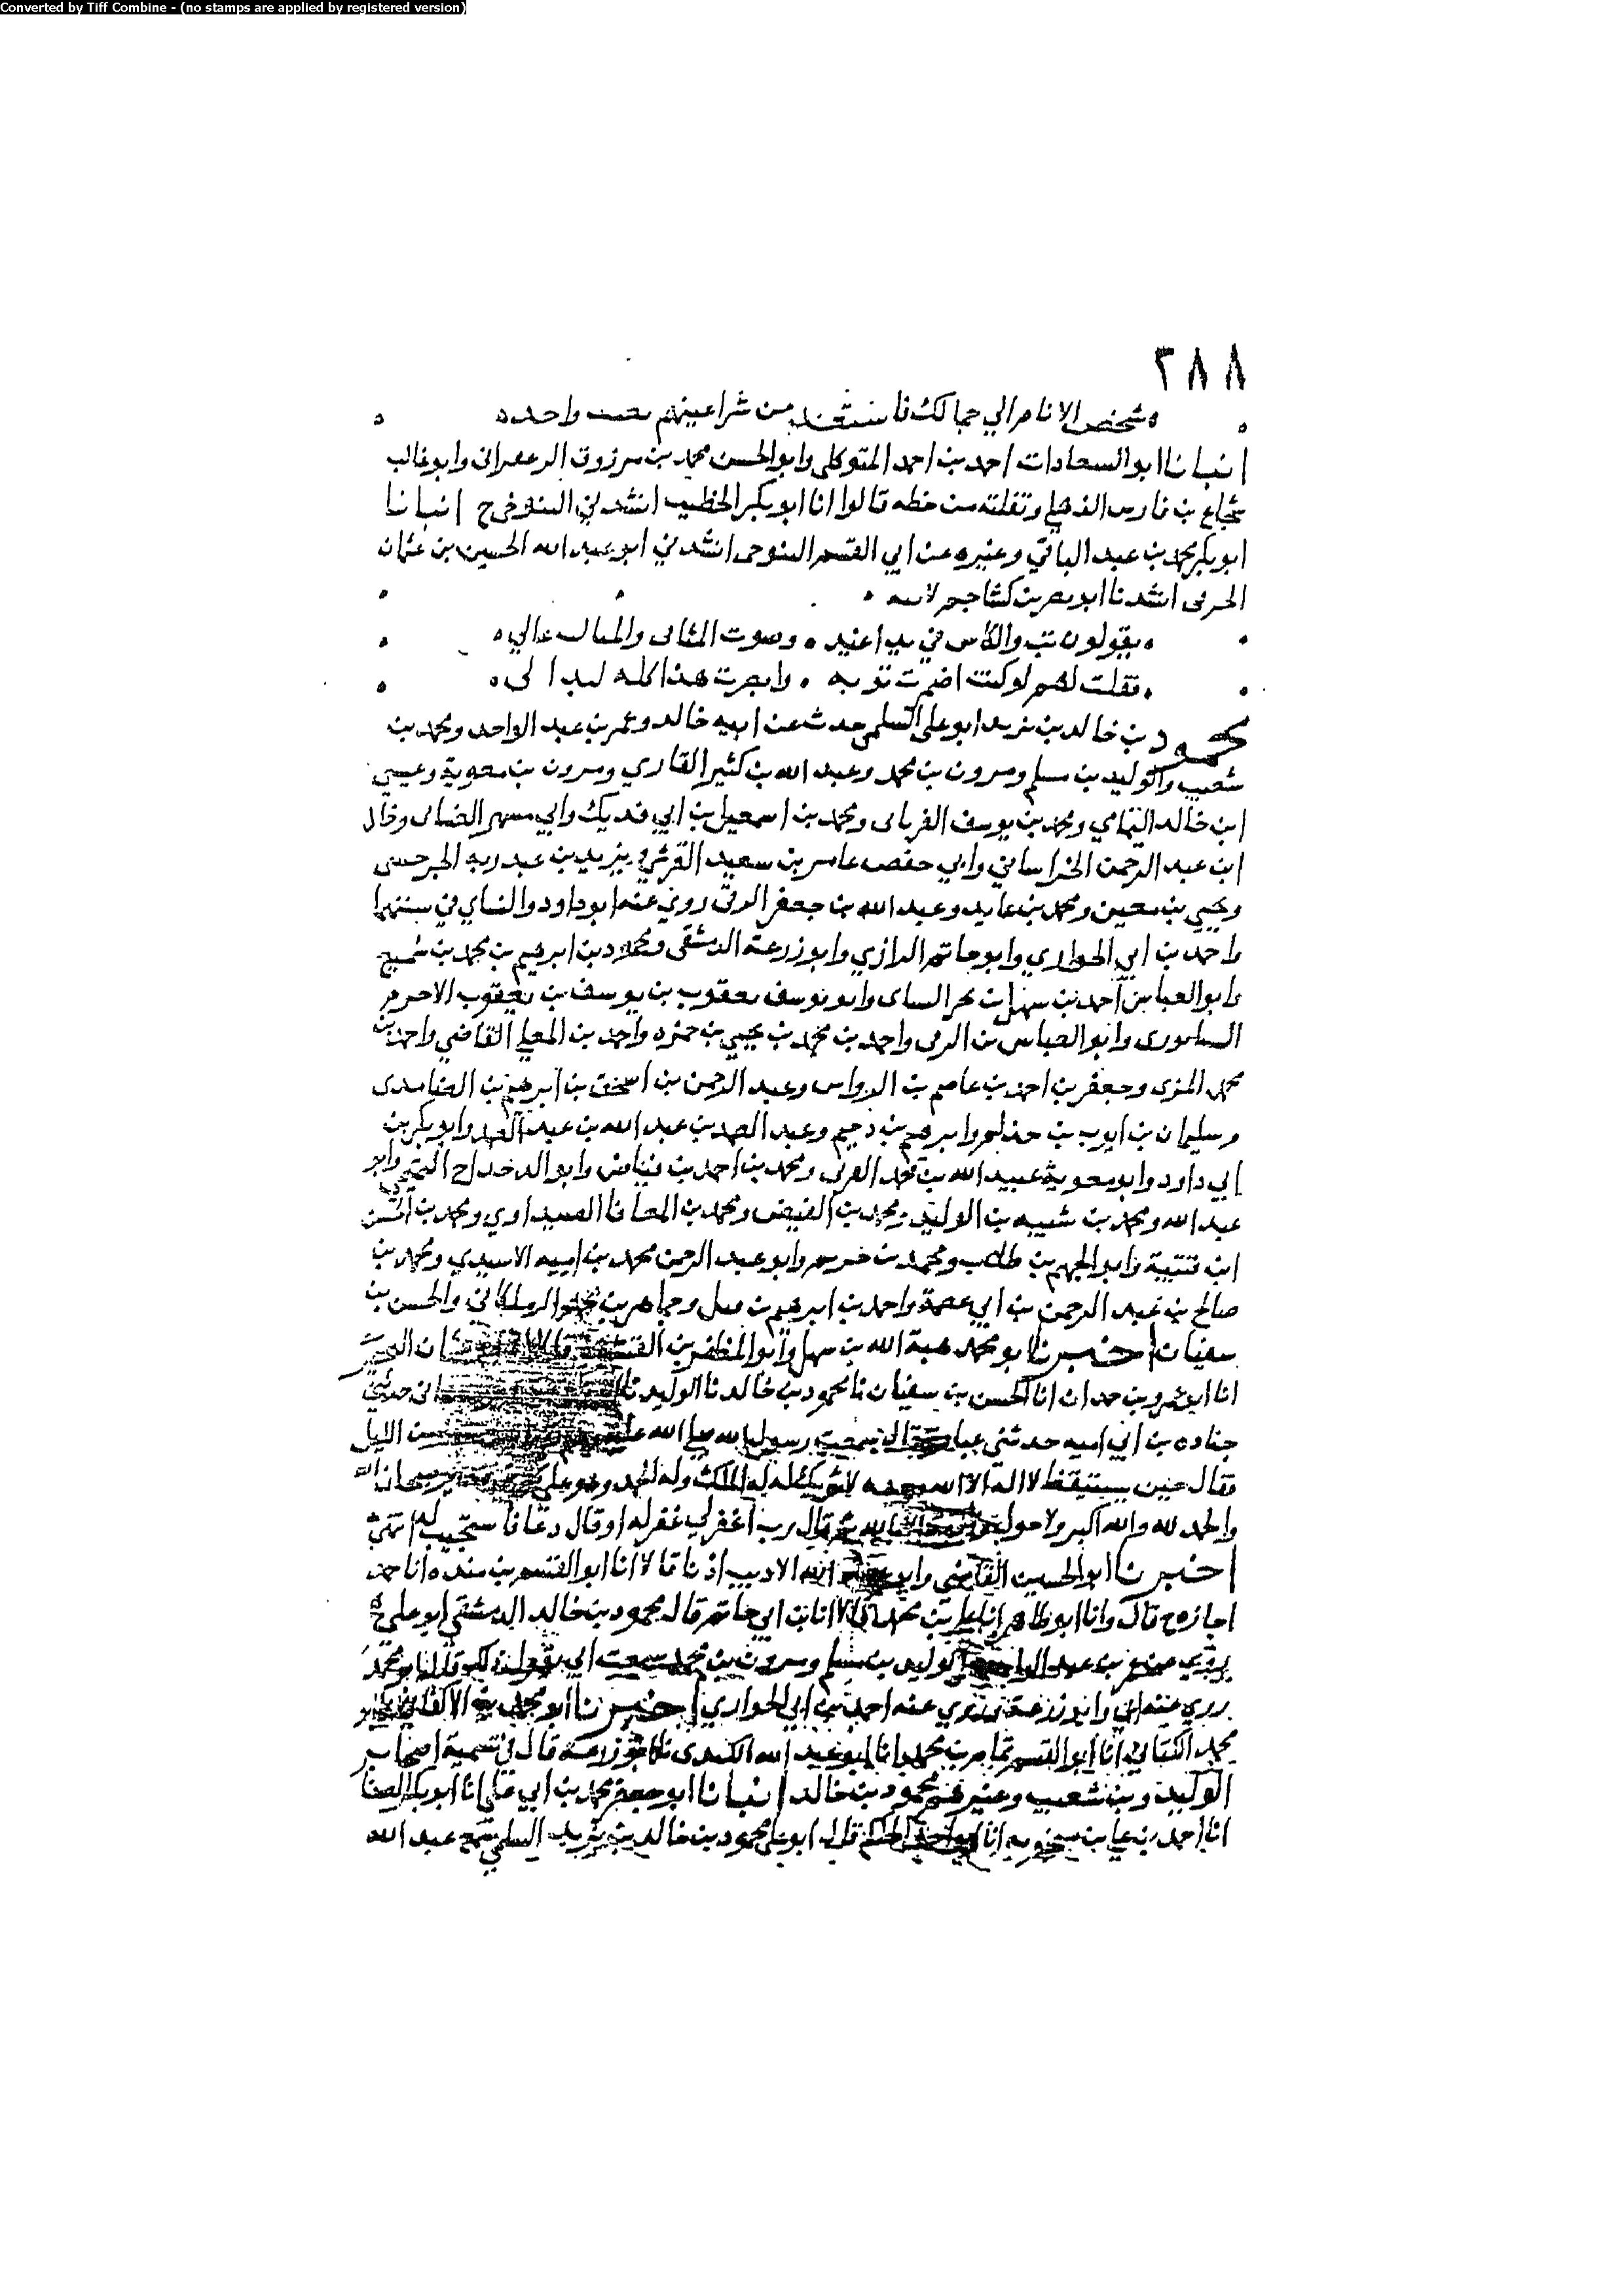 Converted by Tiff Combine - (no stamps are applied by registered version)
٢٨٨
شخص الانام الي جمالك فا من شر اعينهم واحد
انبانا ابو السعادات احمد بن احمد المتوكلي وابو الحسن محمد بن مرزوق الزعفراني وابو غالب
شجاع بن فارس الذهلي ونقلته من خطه قالوا انا ابو بكر الخطيب انشدني التنوخي ح انبانا
ابو بكر محمد بن عبد الباقي وغيره عن ابي القسم التنوخي انشدني ابو عبد الله الحسين بن عثمان
الحربي انشدنا ابو نصر بن كشاجم لابيه
يقولون تب والكاس في يد اغيد وصوت المثاني والمثالث عالي
فقلت لهم لو كنت اضمرت توبه وابصرت هذا كله لبدا لي
محمود بن خالد بن يزيد ابو علي السلمي حدث عن ابيه خالد وعمر بن عبد الواحد ومحمد بن
شعيب والوليد بن مسلم ومرون بن محمد وعبد الله بن كثير القاري ومرون بن معوية وعيسي
ابن خالد اليمامي ومحمد بن يوسف الفريابي ومحمد بن اسمعيل بن ابي فديك وابي مسهر الغساني وخالد
ابن عبد الرحمن الخراساني وابي حفص عامر بن سعيد القرشي ويزيد بن عبد ربه الجرجسي
ويحيي بن معين ومحمد بن عايد وعبد الله بن جعفر الرقي روي عنه ابو داود والنساي في سننهما
واحمد بن ابي الحواري وابو حاتم الرازي وابو زرعة الدمشقي ومحمود بن ابرهيم بن محمد بن سميع
وابو العباس احمد بن سهل بن بحر وابو يوسف يعقوب بن يوسف بن يعقوب الاخرم
وابو العباس بن واحمد بن محمد بن يحيي بن حمزه واحمد بن المعلي القاضي واحمد بن
محمد المزي وجعفر بن احمد بن عاصم بن الرواس وعبد الرحمن بن اسحق بن ابرهيم بن الضامدي
وسليمان بن ايوب بن حذلم وابرهيم بن دحيم وعبد الصمد بن عبد الله بن عبد الصمد وابو بكر بن
ابي داود وابو معوية عبيد الله بن محمد ومحمد بن احمد بن فياض وابو الدحداح التميمي وابو
عبد الله ومحمد بن شيبه بن الوليد ومحمد بن الفيض ومحمد بن المعافا الصيداوي ومحمد بن الحسن
ابن قتيبة وابو الجهم بن طلاب ومحمد بن خريم وابو عبد الرحمن محمد بن اميه الاسيدي ومحمد بن
صالح بن عبد الرحمن بن ابي عصمة واحمد بن ابرهيم بن وجماهر بن محمد الزملكاني والحسن بن
سفيان اخبرنا ابو محمد هبة الله بن سهل وابو المظفر بن القشيري قالا
انا ابو عمرو بن حمدان انا الحسن بن سفيان نا محمود بن خالد نا الوليد نا حدثني
جناده بن ابي اميه حدثني عباده قال سمعت رسول الله صلي الله عليه من الليل
فقال حين يستيقظ لا اله الا الله وحده لا شريك له له الملك وله الحمد وهو علي سبحان الله
والحمد لله والله اكبر ولا حول بالله ثم قال رب اغفر لي غفر له او قال دعا فاستجيب له انتهي
اخبرنا ابو الحسين القاضي وابو عبد الله الاديب اذنا قالا انا ابو القسم بن منده انا حمد
اجازه ح قال وانا ابو طاهر انا علي بن محمد قالا انا ابن ابي حاتم قال محمود بن خالد الدمشقي ابو علي
روي عن عمر بن عبد الواحد والوليد بن مسلم ومرون بن محمد سمعت ابي يقول ذلك قال ابو محمد
روي عنه ابي وابو زرعة وروي عنه احمد بن ابي الحواري اخبرنا ابو محمد بن الاكفاني نا ابو
محمد الكتاني انا ابو القسم تمام بن محمد انا ابو عبد الله الكندي نا ابو زرعه قال في تسمية اصحاب
الوليد وبن شعيب وغيرهم محمود بن خالد انبانا ابو جعفر محمد بن ابي علي انا ابو بكر الصفار
انا احمد بن علي بن منجويه انا ابو احمد الحاكم قال ابو علي محمود بن خالد بن يزيد السلمي سمع عبد الله